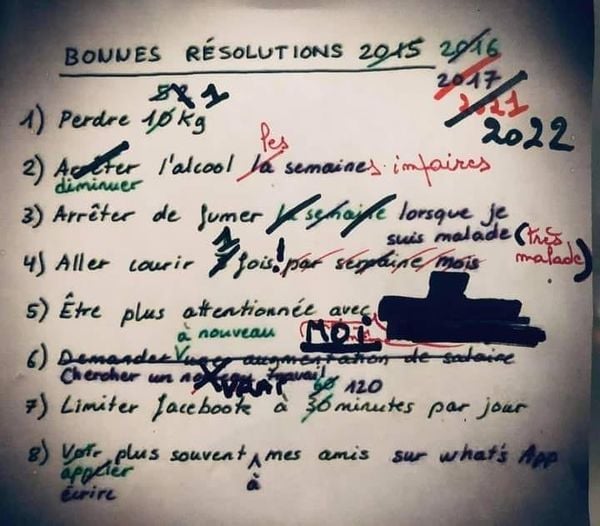 BONNES RÉSOLUTIONS 2015 2016
2017
2021
2022
5 1
1) Perdre 10 kg
les
2) Arrêter l'alcool la semaines impaires
diminuer
3) Arrêter de fumer la semaine lorsque je
suis malade (très
malade)
1
4) Aller courir fois! par semaine mois
5) Être plus attentionnée avec
à nouveau MOI
6) Demander une augmentation de salaire
Chercher un nouveau travail
VRAI 60 120
7) Limiter facebook à 30 minutes par jour
8) Voir plus souvent mes amis sur what's App
appeler à
écrire